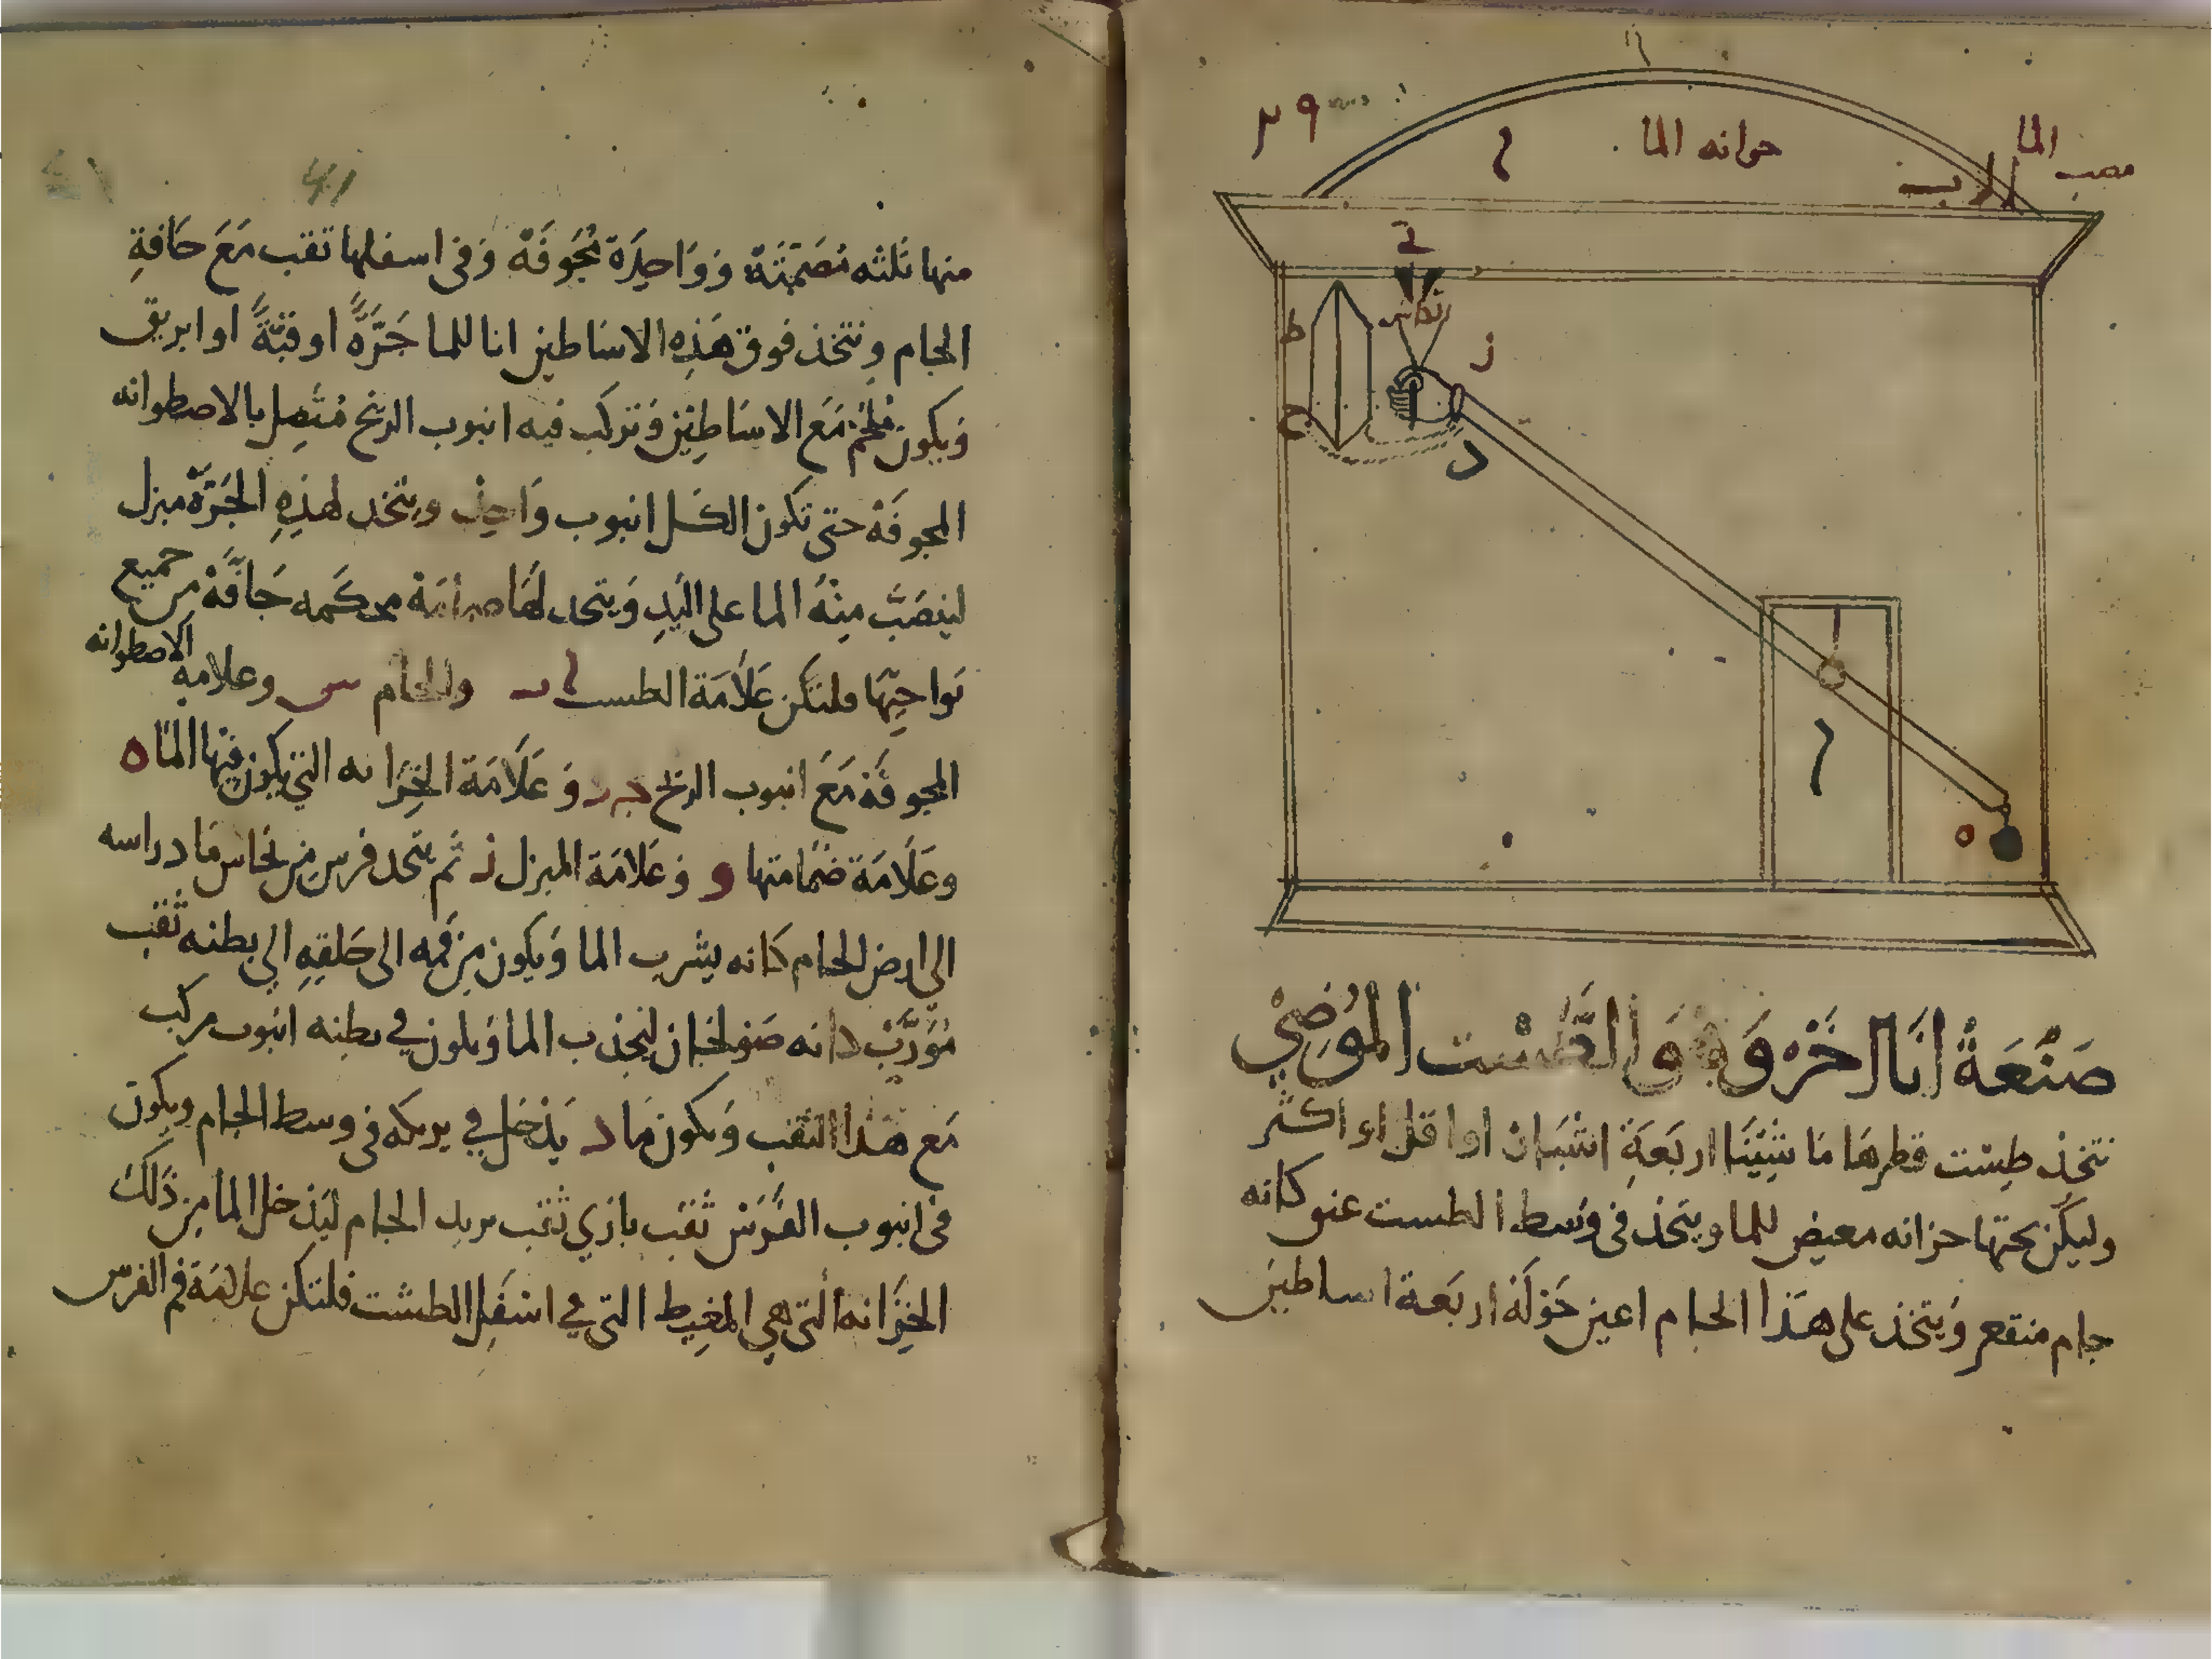 ٢٩
خزانه الما
مصب الما
ب
ط
ز
ح
د
ه
صَنْعَةُ انَا اخَرْ وَهُوَ الطَّسْت المُوَضِّي
نتخذ طِسْت قطرها مَا شِيْنَا اربَعَةِ اشْبَار او اقل او اكثر
وليَكُن تحتها خزانه معيض للما ويتخذ فى وَسط الطست عنو كانه
جام منقعر وَيتخذ على هَذا الجام اعين حَوْلَهُ اربَعة اساطين
منها ثلثه مُصَمَّتَة وَوَاحِدَة مُجَوفَةْ وَفى اسفلها ثقب مَعَ حَافةِ
الجام ونتخذ فوق هَذِه الاسَاطين انا للما جَرَّةً او قبَّةً او ابريق
وَيكون مُلحَم مَع الاسَاطِيْن وَتركب فيه انبوب الريح مُتَّصِل بالاصطوانه
المجوفَة حتى تكون الكل انبوب وَاحِد ويتخد لهَذِهِ الجَرَّة مبزل
لينصَبَّ مِنْهُ الما على اليَدِ وَيتخد لهَا ضمامَةْ محكَمه حَافَّةْ من جميع
نَواحِيْهَا فلتكن عَلَامَة الطست ا ب والجام س وعلامه الاصطوانه
المجوفَة مَعَ انبوب الريح ج د وَ عَلَامَة الخِزَانه التي يكون فيها المَا ه
وعَلَامَة ضمَامتها و وَعَلامَة المبزل ز ثم يتخد فرس من نحاس مَاد راسه
الى ارض الجام كَانه يشرب الما وَيكون من فمه الى حَلقِهِ الى بطنه ثقب
مُوَرَّبْ دانه لينجذب الما وَيكون في بطنه انبوب مركب
مَع هَذا الثقب وَيكون مَاد يَدْخل في بربكه فى وسط الجام ويكون
فى انبوب الفَرَسْ ثقب بازي ثقب بربك الجام ليَدْخل الما مِن ذَلكَ
الخِزَانه التى هي المغِيط التى في اسْفَل الطشت فلتكن علامَة فم الفرس